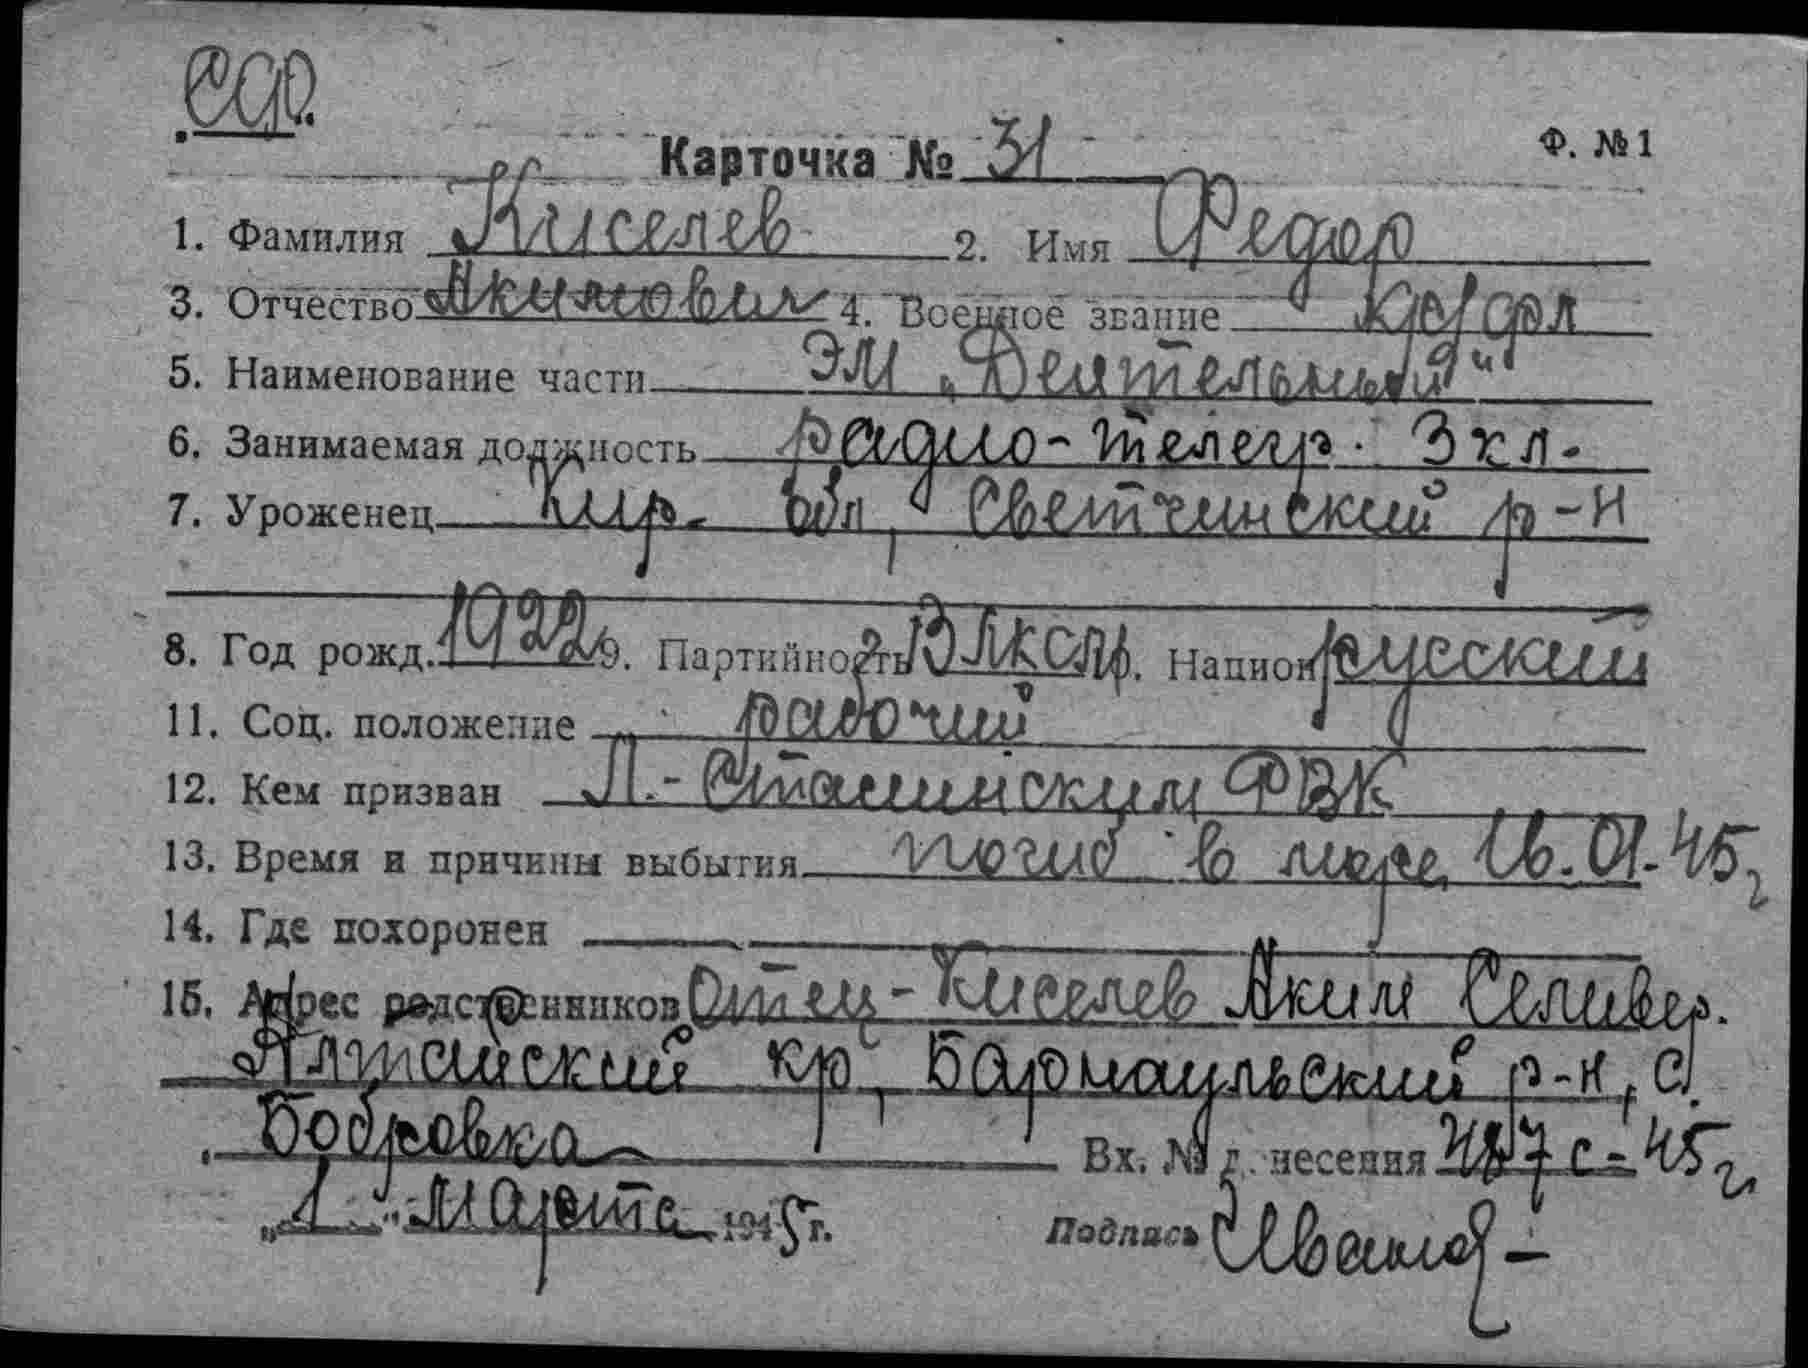 СФ.
Ф. № 1
Карточка № 31
1. Фамилия Киселев 2. Имя Федор
3. Отчество Акимович 4. Военное звание кр/фл
5. Наименование части ЭМ „Деятельный"
6. Занимаемая должность радио-телегр. 3 кл.
7. Уроженец Кир. обл, Светчинский р-н
8. Год рожд. 1922 г 9. Партийность ВЛКСМ 10. Национ русский
11. Соц. положение рабочий
12. Кем призван Л.- РВК
13. Время и причины выбытия погиб в море 16.01.45 г
14. Где похоронен
15. Адрес родственников Отец - Киселев Аким Селивер.
Алтайский кр, Барнаульский р-н, с.
Бобровка Вх. № донесения 487 с-45 г.
„1" марта 1945 г. Подпись